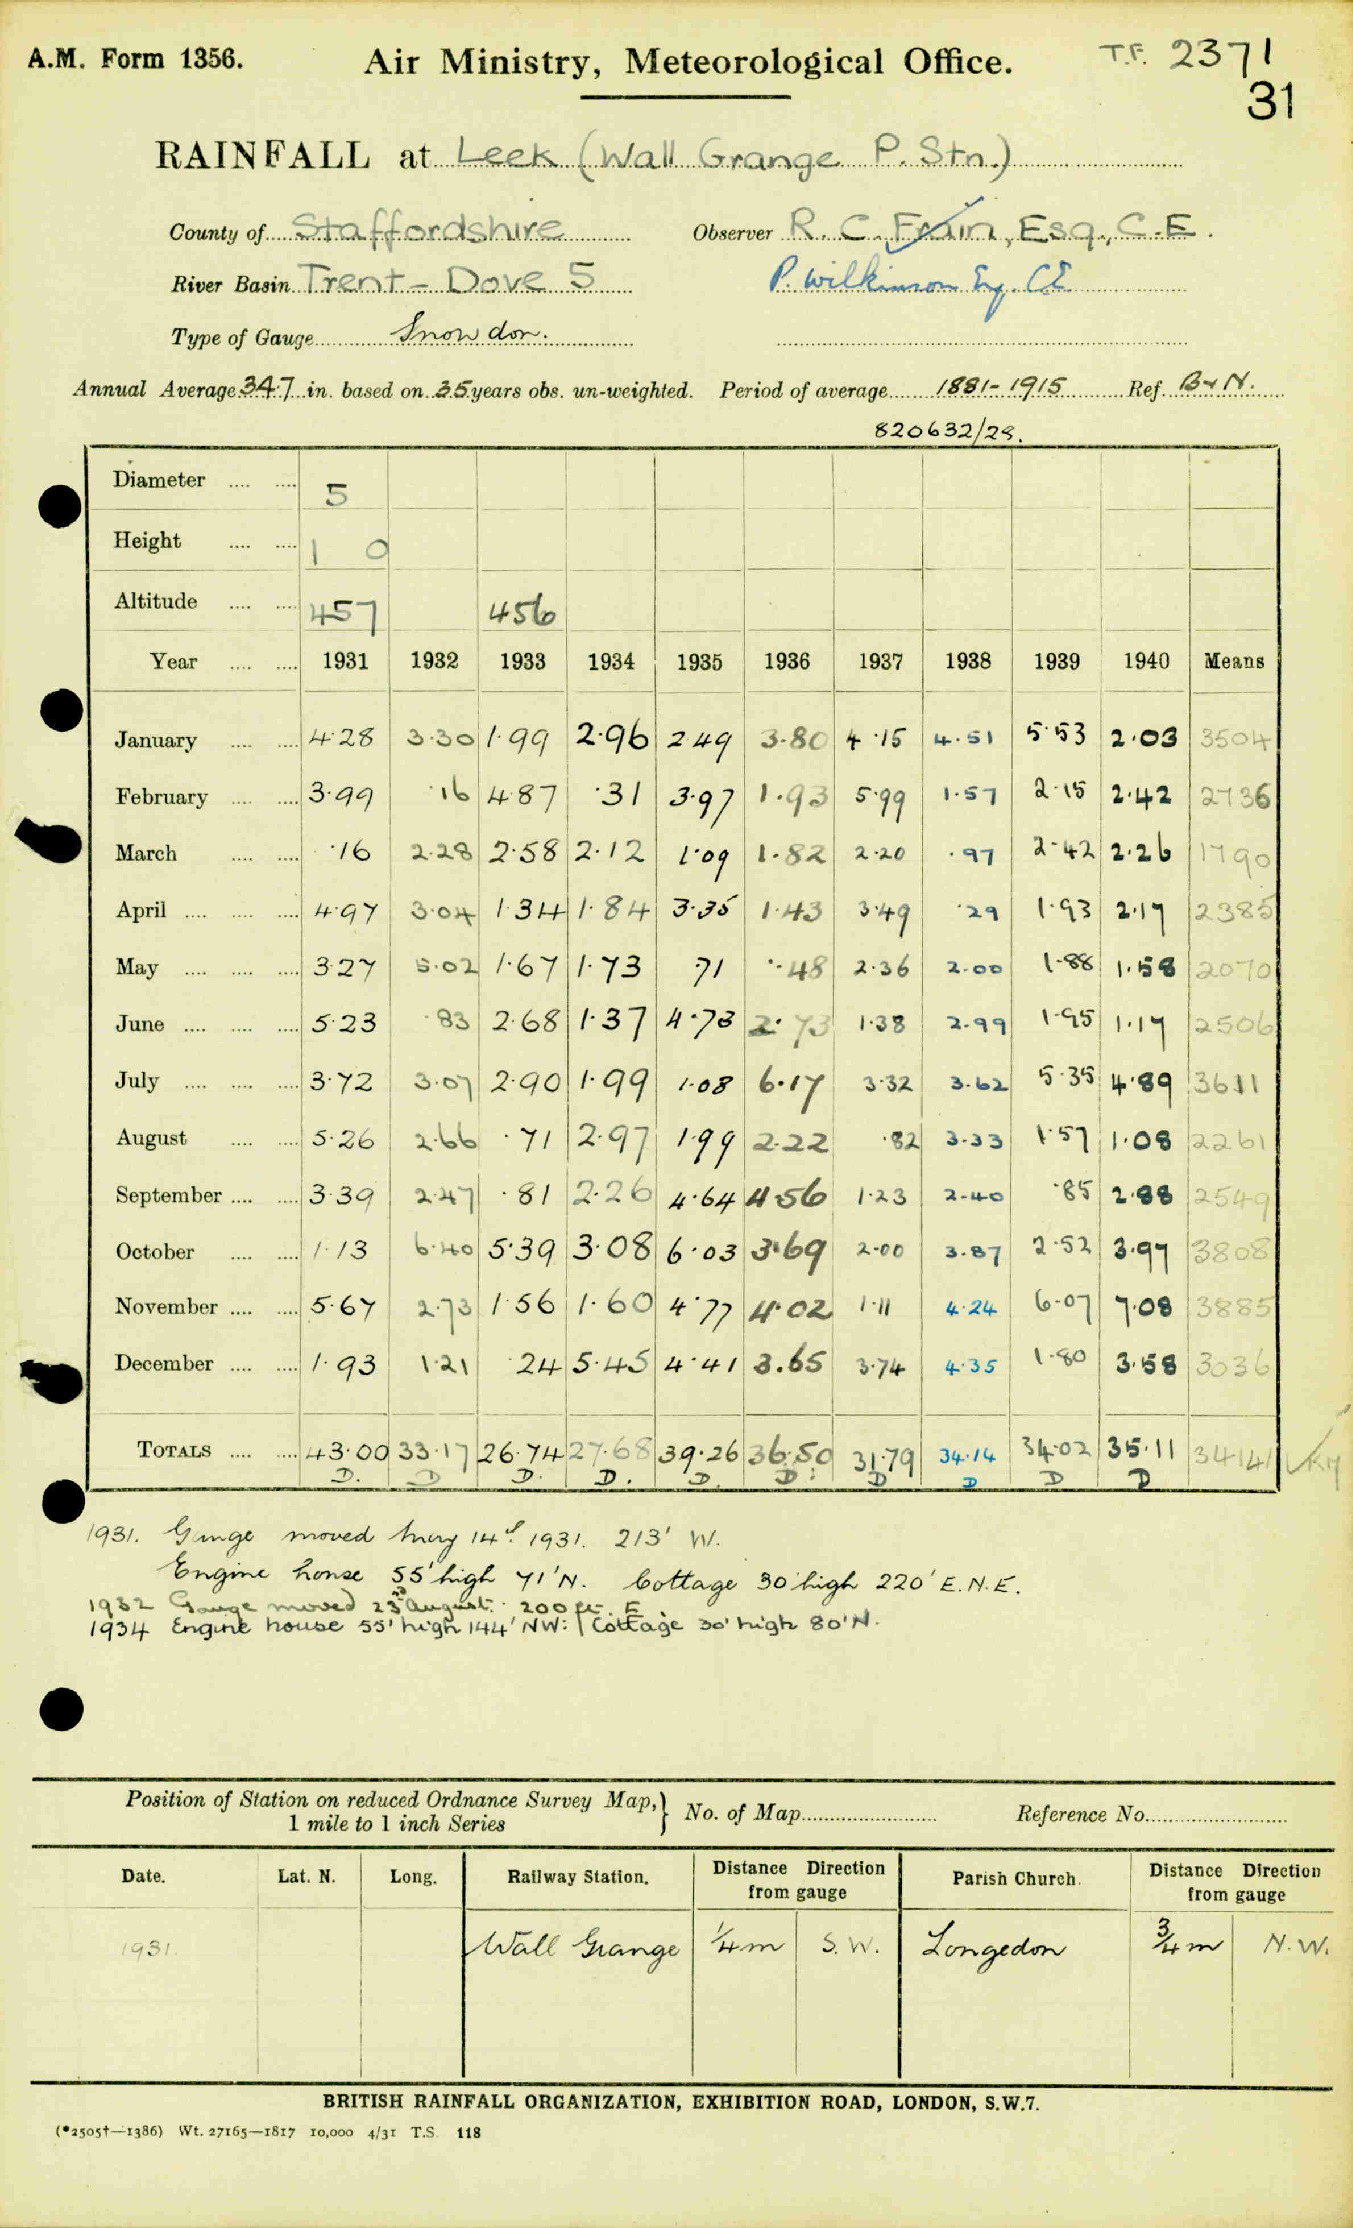 A.M. Form 1356. Air Ministry, Meteorological Office. T.F. 2371
31
RAINFALL at Leek (Wall Grange P. Stn.)
County of Staffordshire Observer R. C. Frain, Esq., C.E.
River Basin Trent - Dove 5 P. Wilkinson Esq. C.E.
Type of Gauge Snowdon.
Annual Average 34.7 in. based on 35 years obs. un-weighted. Period of average 1881-1915 Ref. B & N.
820632/29.
Diameter .... .... 5
Height .... .... 1 0
Altitude .... .... 457 456
Year .... .... 1931 1932 1933 1934 1935 1936 1937 1938 1939 1940 Means
January .... .... 4.28 3.30 1.99 2.96 2.49 3.80 4.15 4.51 5.53 2.03 3504
February .... .... 3.99 .16 4.87 .31 3.97 1.93 5.99 1.57 2.15 2.42 2736
March .... .... .16 2.28 2.58 2.12 1.09 1.82 2.20 .97 2.42 2.26 1790
April .... .... .... 4.97 3.04 1.34 1.84 3.35 1.43 3.49 .29 1.93 2.17 2385
May .... .... .... 3.27 5.02 1.67 1.73 .71 .48 2.36 2.00 1.88 1.58 2070
June .... .... .... 5.23 .83 2.68 1.37 4.73 2.73 1.38 2.99 1.95 1.17 2506
July .... .... .... 3.72 3.07 2.90 1.99 1.08 6.17 3.32 3.62 5.35 4.89 3611
August .... .... 5.26 2.66 .71 2.97 1.99 2.22 .82 3.33 1.57 1.08 2261
September .... .... 3.39 2.47 .81 2.26 4.64 4.56 1.23 2.40 .85 2.88 2549
October .... .... 1.13 6.40 5.39 3.08 6.03 3.69 2.00 3.87 2.52 3.97 3808
November .... .... 5.67 2.73 1.56 1.60 4.77 4.02 1.11 4.24 6.07 7.08 3885
December .... .... 1.93 1.21 .24 5.45 4.41 3.65 3.74 4.35 1.80 3.58 3036
TOTALS .... .... 43.00 33.17 26.74 27.68 39.26 36.50 31.79 34.14 34.02 35.11 34141
D. D D. D. D. D: D D D D
1931. Gauge moved May 14th 1931. 213' W.
Engine house 55' high 71' N. Cottage 30' high 220' E.N.E.
1932 Gauge moved 23rd August. 200 ft. E.
1934 Engine house 55' high 144' NW: Cottage 30' high 80' N.
Position of Station on reduced Ordnance Survey Map, } No. of Map Reference No.
1 mile to 1 inch Series
Date. Lat. N. Long. Railway Station. Distance Direction from gauge Parish Church. Distance Direction from gauge
1931. Wall Grange 1/4 m S.W. Longsdon 3/4 m N.W.
BRITISH RAINFALL ORGANIZATION, EXHIBITION ROAD, LONDON, S.W.7.
(*2505†—1386) Wt. 27165—1817 10,000 4/31 T.S. 118